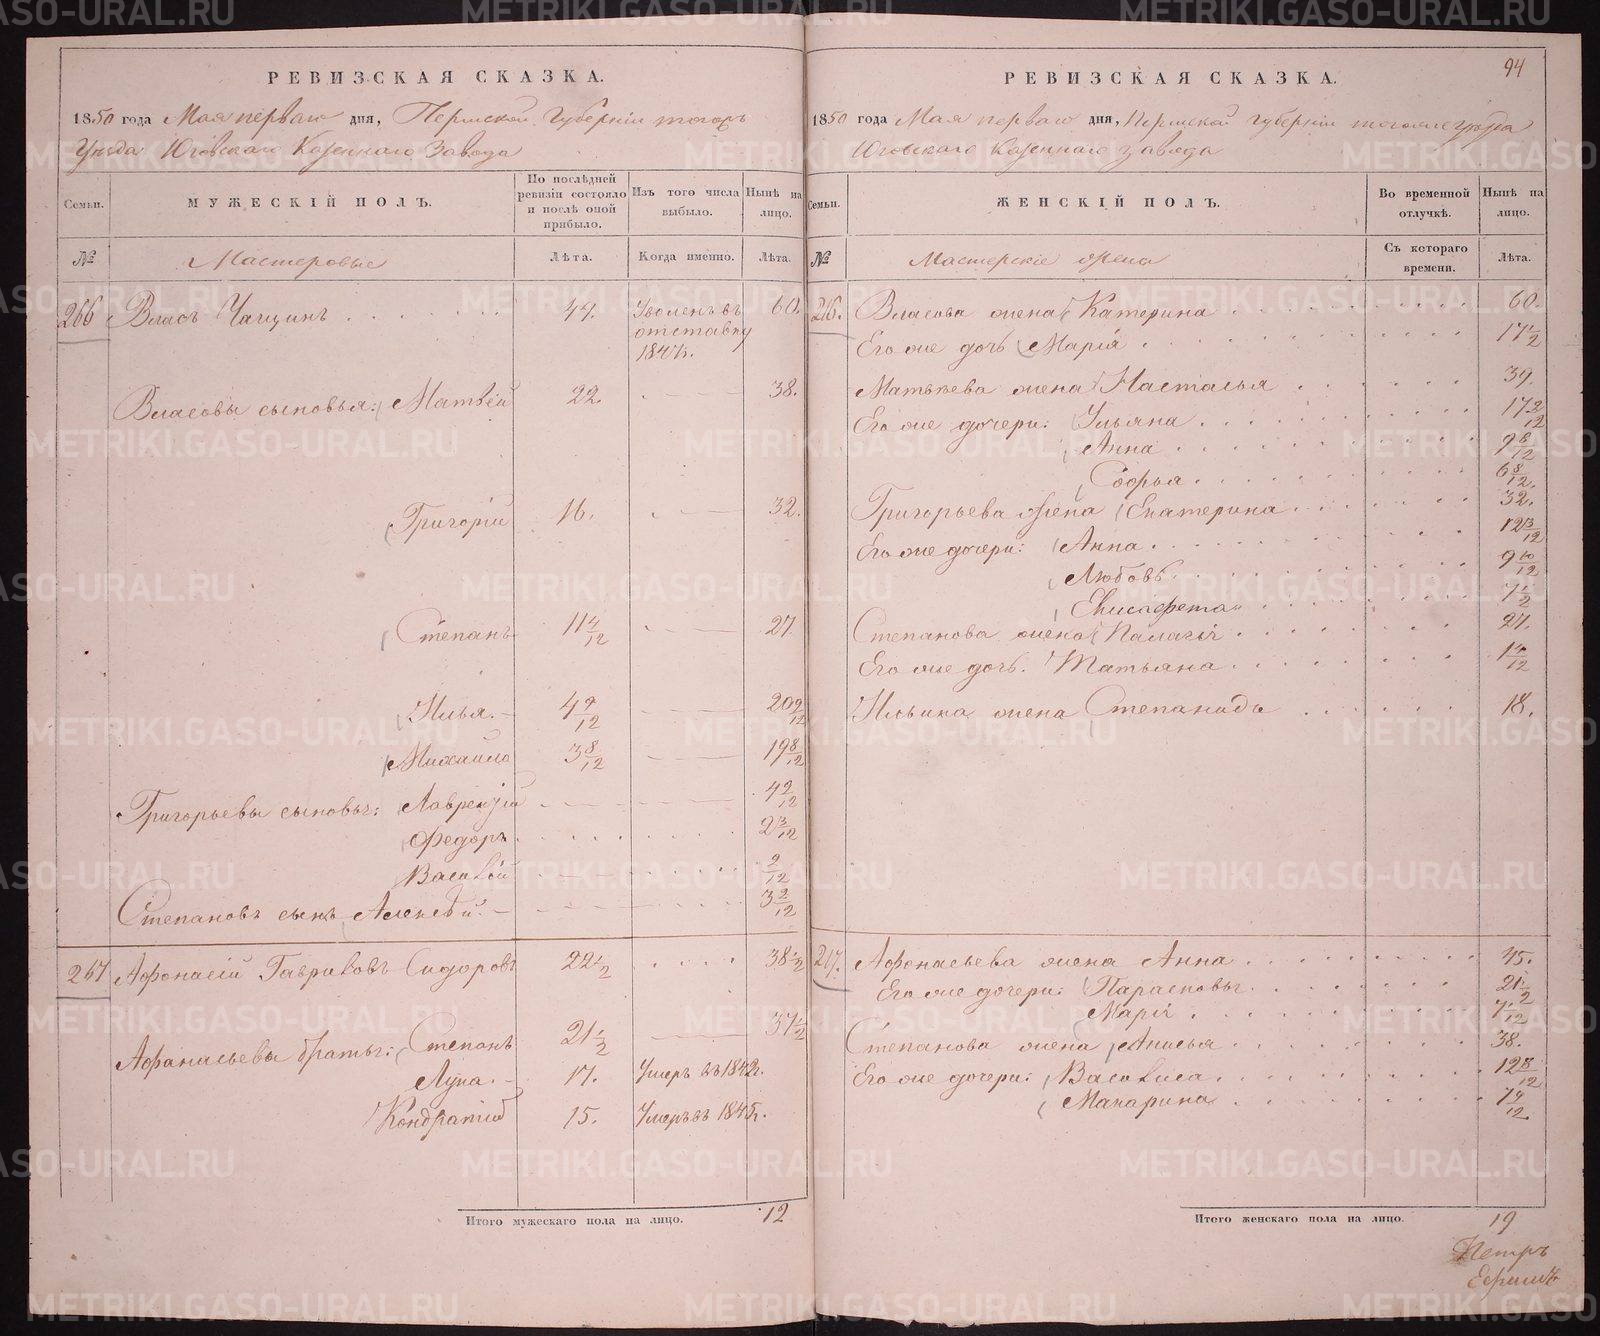 РЕВИЗСКАЯ СКАЗКА.
1850 года Мая перваго дня, Пермской Губерніи тогожъ
Уѣзда Юговскаго Казеннаго Завода
Семьи.
МУЖЕСКІЙ ПОЛЪ.
По послѣдней ревизіи состояло и послѣ оной прибыло.
Изъ того числа выбыло.
Нынѣ на лицо.
№
Мастеровые
Лѣта.
Когда именно.
Лѣта.
266 Власъ Чащинъ 44. Уволенъ въ 60.
отставку
1847г.
Власовы сыновья: Матвѣй 22. 38.
Григорій 16. 32.
Степанъ 11 4/12 27.
Илья. 4 9/12 20 9/12
Михаило 3 8/12 19 8/12
Григорьевы сыновья: Лаврентій 4 2/12
Федоръ 2 3/12
Василій 2/12
Степановъ сынъ Алексѣй. 3 2/12
267 Афонасій Гавриловъ Сидоровъ 22 1/2 38 1/2
Афанасьевы братья: Степанъ 21 1/2 37 1/2
Лука. 17. Умеръ въ 1842г.
Кондратій 15. Умеръ въ 1845г.
Итого мужескаго пола на лицо. 12
94
РЕВИЗСКАЯ СКАЗКА.
1850 года Мая перваго дня, Пермской Губерніи тогоже Уѣзда
Юговскаго Казеннаго завода
Семьи.
ЖЕНСКІЙ ПОЛЪ.
Во временной отлучкѣ.
Нынѣ на лицо.
№
Мастерскіе жены
Съ котораго времени.
Лѣта.
216. Власова жена Катерина 60.
Его же дочь Марія 17 1/2
Матвѣева жена Настасья 39.
Его же дочери: Ульяна 17 2/12
Анна 9 6/12
Софья 6 8/12.
Григорьева жена Екатерина 32.
Его же дочери: Анна 12 3/12
Любовь 9 10/12
Елисафета 7 1/2
Степанова жена Палагія 27.
Его же дочь. Татьяна 1 4/12
Ильина жена Степанида 18.
217. Афонасьева жена Анна 45.
Его же дочери: Парасковья 21 1/2
Марія
Степанова жена Анисья 38.
Его же дочери: Василиса 12 8/12
Макарина 7 9/12.
Итого женскаго пола на лицо. 19
Петръ
METRIKI.GASO-URAL.RU